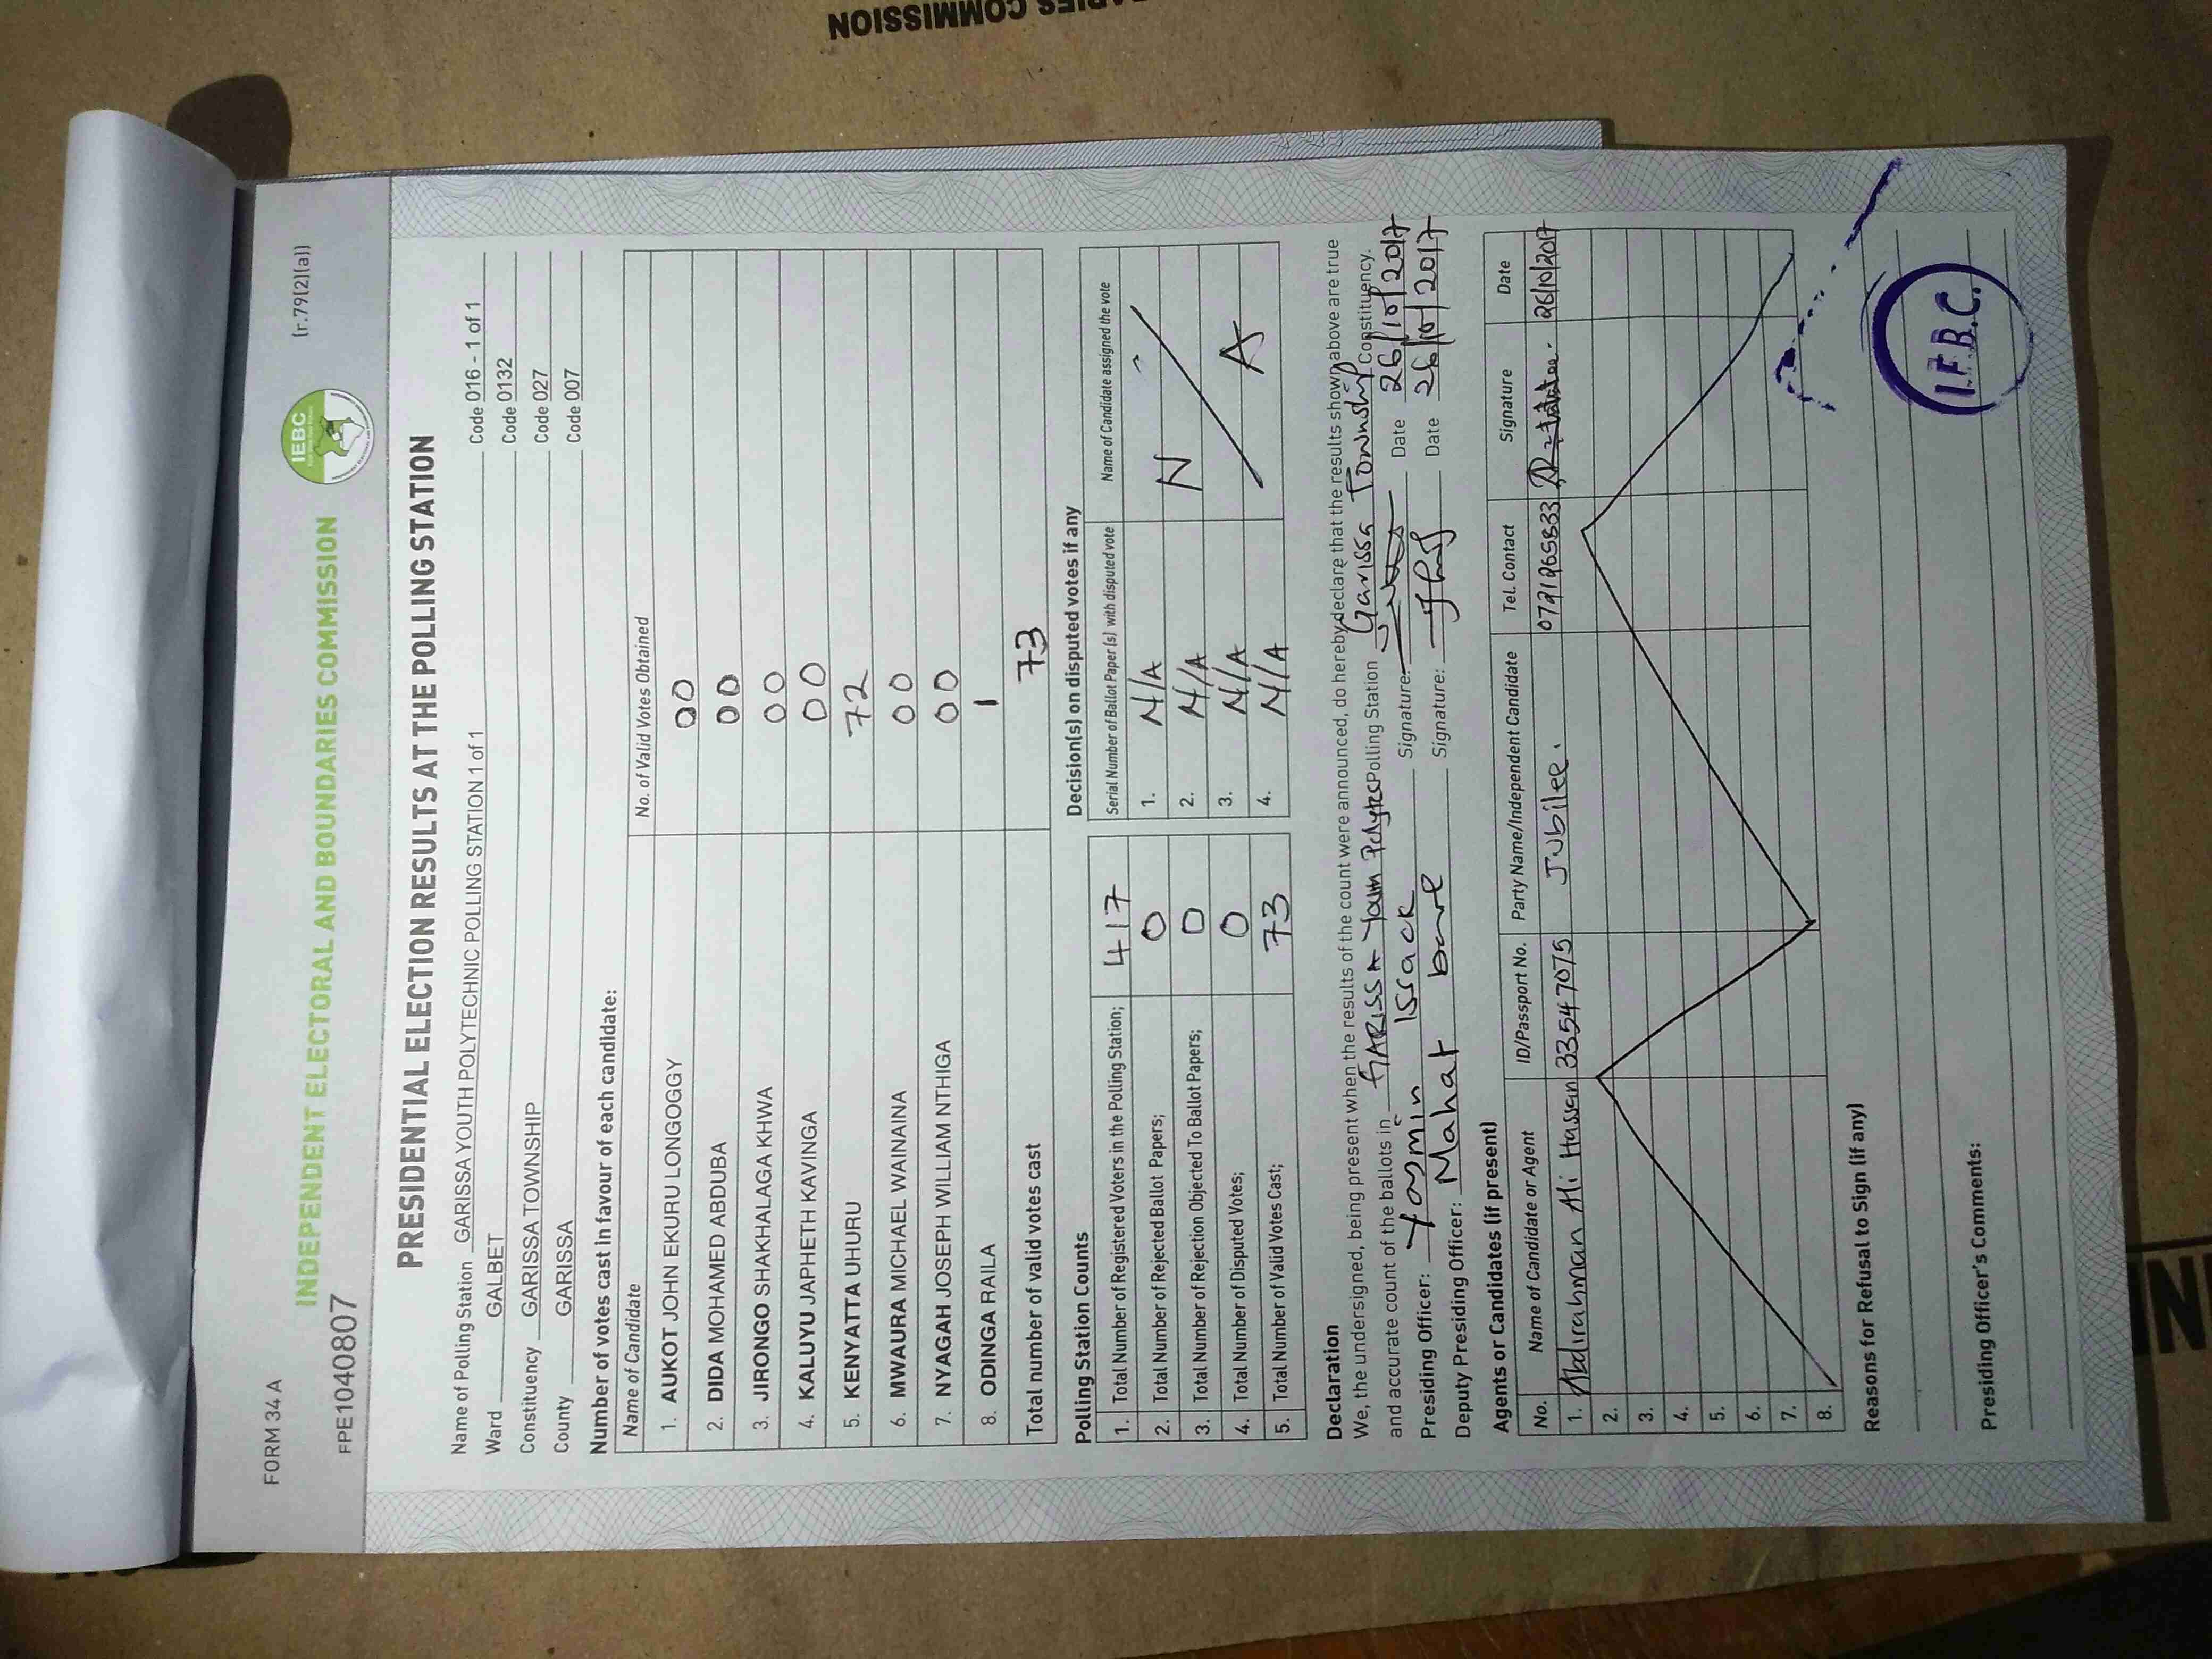 ARIES COMMISSION
FORM 34 A
(r.79(2)(a))
INDEPENDENT ELECTORAL AND BOUNDARIES COMMISSION
IEBC
FPE1040807
PRESIDENTIAL ELECTION RESULTS AT THE POLLING STATION
Name of Polling Station GARISSA YOUTH POLYTECHNIC POLLING STATION 1 of 1 Code 016 - 1 of 1
Ward GALBET Code 0132
Constituency GARISSA TOWNSHIP Code 027
County GARISSA Code 007
Number of votes cast in favour of each candidate:
Name of Candidate No. of Valid Votes Obtained
1. AUKOT JOHN EKURU LONGOGGY 00
2. DIDA MOHAMED ABDUBA 00
3. JIRONGO SHAKHALAGA KHWA 00
4. KALUYU JAPHETH KAVINGA 00
5. KENYATTA UHURU 72
6. MWAURA MICHAEL WAINAINA 00
7. NYAGAH JOSEPH WILLIAM NTHIGA 00
8. ODINGA RAILA 1
Total number of valid votes cast 73
Polling Station Counts
1. Total Number of Registered Voters in the Polling Station; 417
2. Total Number of Rejected Ballot Papers; 0
3. Total Number of Rejection Objected To Ballot Papers; 0
4. Total Number of Disputed Votes; 0
5. Total Number of Valid Votes Cast; 73
Decision(s) on disputed votes if any
Serial Number of Ballot Paper (s) with disputed vote Name of Candidate assigned the vote
1. N/A
2. N/A N
3. N/A
4. N/A A
Declaration
We, the undersigned, being present when the results of the count were announced, do hereby declare that the results shown above are true
and accurate count of the ballots in GARISSA Youth Polytec Polling Station Garissa Township Constituency.
Presiding Officer: Yasmin Issack Signature: Date 26/10/2017
Deputy Presiding Officer: Mahat bare Signature: Date 26/10/2017
Agents or Candidates (if present)
No. Name of Candidate or Agent ID/Passport No. Party Name/Independent Candidate Tel. Contact Signature Date
1. Abdirahman Ali Hassan 33547075 Jubilee. 26/10/2017
2.
3.
4.
5.
6.
7.
8.
Reasons for Refusal to Sign (if any)
Presiding Officer's Comments:
I.E.B.C.